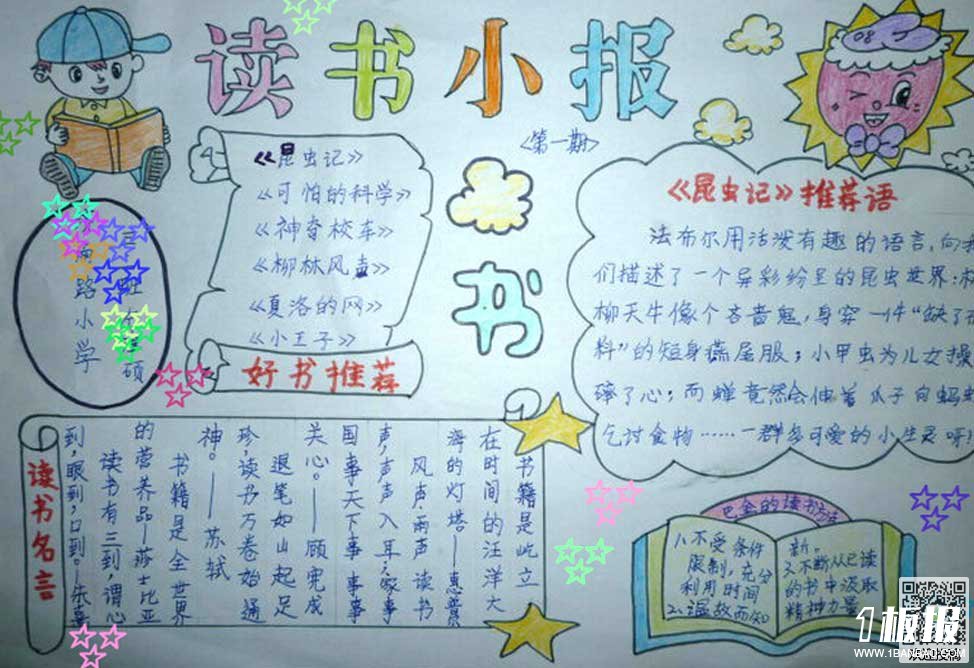 读书小报
<第一期>
《昆虫记》
《可怕的科学》
《神奇校车》
《柳林风声》
《夏洛的网》
《小王子》
好书推荐
路小学
硕
书
《昆虫记》推荐语
法布尔用活泼有趣的语言,向
们描述了一个异彩纷呈的昆虫世界:
柳天牛像个吝啬鬼,身穿一件“缺了
料”的短身燕尾服;小甲虫为儿女操
碎了心;而蝉竟然会伸着爪子向蚂
乞讨食物……一群多可爱的小生灵呀
读书名言
书籍是屹立
在时间的汪洋大
海的灯塔。——惠普
风声雨声读书
声,声声入耳;家事
国事天下事事事
关心。——顾宪成
退笔如山起足
珍,读书万卷始通
神。——苏轼
书籍是全世界
的营养品—莎士比亚
读书有三到,谓心
到,眼到,口到。—朱熹
巴金的读书方法
1.不受条件
限制,充分
利用时间
2.温故而知
新。
3.不断从已读
的书中汲取
精神力量
1板报
WWW.1BANBAO.COM